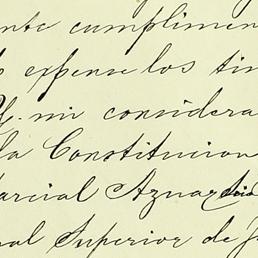 ente cumplimen
expense los tim
mi considera
la Constitucion
arcial Aznar
nal Superior de J